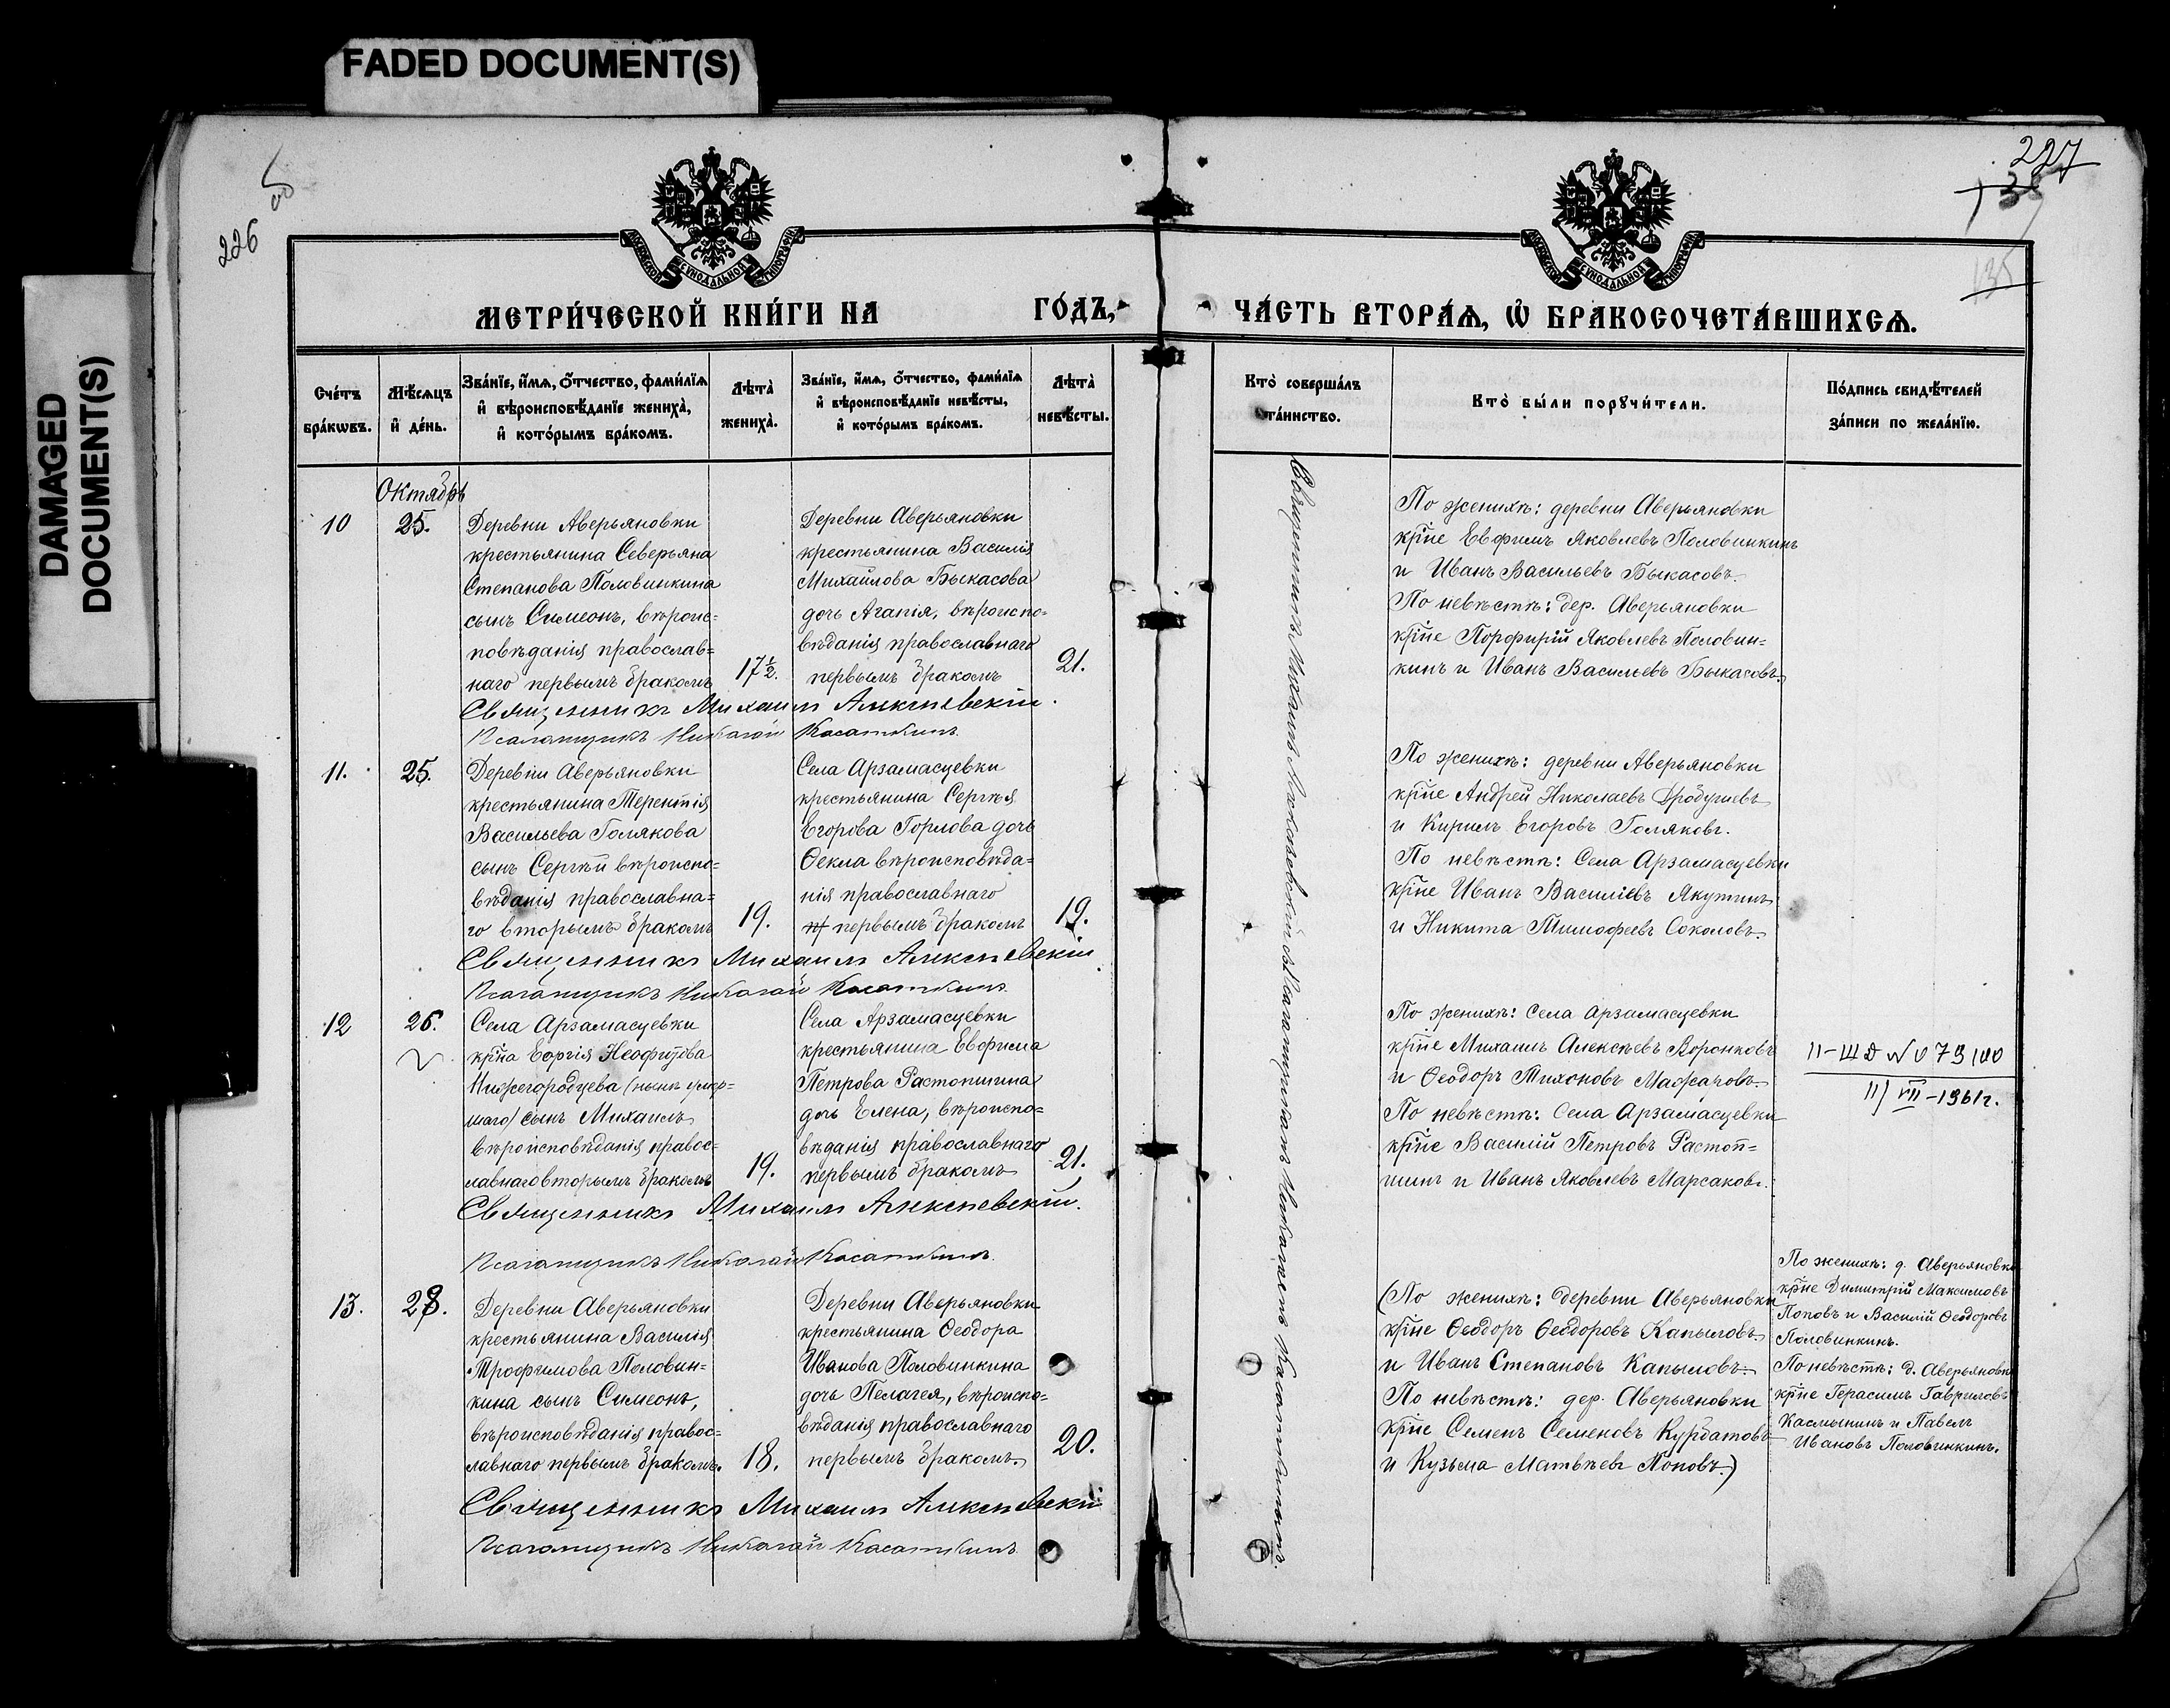 FADED DOCUMENT(S)
DAMAGED
DOCUMENT(S)
226
227
135
МЕТРИ́ЧЕСКОЙ КНИ́ГИ НА ГО́ДЪ,
ЧА́СТЬ ВТОРА́Ѧ, Ѡ҆ БРАКОСОЧЕТА́ВШИХСѦ.
Сче́тъ бра́кѡвъ.
Мѣ́сѧцъ и҆ де́нь.
Зва́нїе, и҆́мѧ, ѻ҆́тчество, фами́лїѧ и҆ вѣроисповѣ́данїе жениха̀, и҆ кото́рымъ бра́комъ.
Лѣта̀ жениха̀.
Зва́нїе, и҆́мѧ, ѻ҆́тчество, фами́лїѧ и҆ вѣроисповѣ́данїе невѣ́сты, и҆ кото́рымъ бра́комъ.
Лѣта̀ невѣ́сты.
Кто̀ соверша́лъ та́инство.
Кто̀ бы́ли порꙋчи́тели.
По́дпись свидѣ́телей за́писи по жела́нїю.
Октябрь
10
25.
Деревни Аверьяновки
крестьянина Северьяна
Степанова Половинкина
сынъ Симеонъ, вѣроис=
повѣданія православ=
наго первымъ бракомъ
17½.
Деревни Аверьяновки
крестьянина Василія
Михайлова Быкасова
дочь Агапія, вѣроиспо=
вѣданія православнаго
первымъ бракомъ
21.
Священникъ Михаилъ Алексѣевскій.
Псаломщикъ Николай Касаткинъ
Священникъ Михаилъ Алексѣевскій съ псаломщикомъ Николаемъ Касаткинымъ.
По женихѣ: деревни Аверьяновки
кр̅не Евфимъ Яковлевъ Половинкинъ
и Иванъ Васильевъ Быкасовъ.
По невѣстѣ: дер. Аверьяновки
кр̅не Порфирій Яковлевъ Половин=
кинъ и Иванъ Васильевъ Быкасовъ.
11.
25.
Деревни Аверьяновки
крестьянина Терентія
Васильева Голякова
сынъ Сергѣй вѣроиспо=
вѣданія православна=
го вторымъ бракомъ
19.
Села Арзамасцевки
крестьянина Сергѣя
Егорова Горлова дочь
Ѳекла вѣроисповѣда=
нія православнаго
первымъ бракомъ
19.
Священникъ Михаилъ Алексѣевскій.
Псаломщикъ Николай Касаткинъ.
По женихѣ: деревни Аверьяновки
кр̅не Андрей Николаевъ Дробушевъ
и Кирилъ Егоровъ Голяковъ.
По невѣстѣ: Села Арзамасцевки
кр̅не Иванъ Василіевъ Якутинъ
и Никита Тимофеевъ Соколовъ.
12
26.
Села Арзамасцевки
кр̅на Еоргія Неофитова
Нижегородцева (нынѣ умер=
шаго) сынъ Михаилъ
вѣроисповѣданія правос=
лавнаго вторымъ бракомъ
19.
Села Арзамасцевки
крестьянина Евфима
Петрова Растопшина
дочь Елена, вѣроиспо=
вѣданія православнаго
первымъ бракомъ
21.
Священникъ Михаилъ Алексѣевскій.
Псаломщикъ Николай Касаткинъ.
По женихѣ: Села Арзамасцевки
кр̅не Михаилъ Алексѣевъ Воронковъ
и Ѳеодоръ Тихоновъ Мажаровъ.
По невѣстѣ: Села Арзамасцевки
кр̅не Василій Петровъ Растоп=
шинъ и Иванъ Яковлевъ Марсаковъ.
11/VII-1961г.
13.
28.
Деревни Аверьяновки
крестьянина Василія
Трофимова Половин=
кина сынъ Симеонъ,
вѣроисповѣданія правос=
лавнаго первымъ бракомъ.
18.
Деревни Аверьяновки
крестьянина Ѳеодора
Иванова Половинкина
дочь Пелагея, вѣроиспо=
вѣданія православнаго
первымъ бракомъ.
20.
Священникъ Михаилъ Алексѣевскій
Псаломщикъ Николай Касаткинъ
(По женихѣ: деревни Аверьяновки
кр̅не Ѳеодоръ Ѳеодоровъ Капыловъ
и Иванъ Степановъ Капыловъ.
По невѣстѣ: дер. Аверьяновки
кр̅не Семенъ Семеновъ Курбатовъ
и Кузьма Матвѣевъ Поповъ.)
По женихѣ: д. Аверьяновки
кр̅не Димитрій Максимовъ
Поповъ и Василій Ѳеодоровъ
Половинкинъ.
По невѣстѣ: д. Аверьяновки
кр̅не Герасимъ Гавриловъ
Касмынинъ и Павелъ
Ивановъ Половинкинъ.